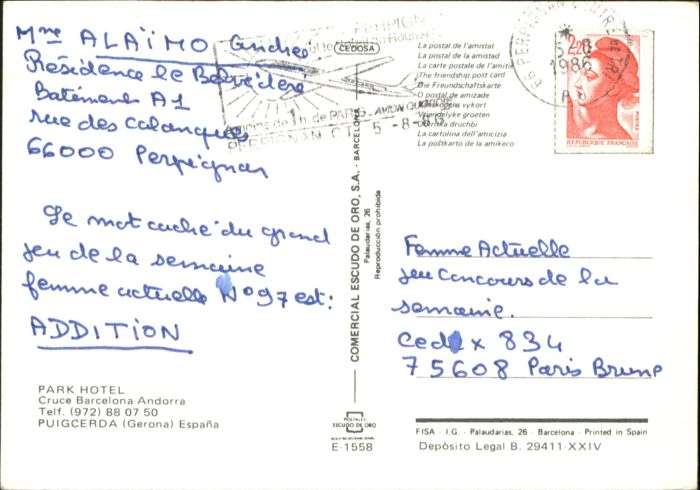 Mme ALAÏMO Andrée
Résidence le Belvédère
Batiment A1
rue des calanques
66000 Perpignan
Le mot caché du grand
jeu de la semaine
femme actuelle N° 97 est:
ADDITION
PARK HOTEL
Cruce Barcelona-Andorra
Telf. (972) 88 07 50
PUIGCERDA (Gerona) España
CEDOSA
COMERCIAL ESCUDO DE ORO, S.A. - BARCELONA
Palaudarias, 26
Reproducción prohibida
POSTALES
ESCUDO DE ORO
E-1558
La postal de l'amistat
La postal de la amistad
La carte postale de l'amitié
The friendship post card
Die Freundschaftskarte
O postal de amizade
vykort
Vriendelyke groeten
druchbi
La cartolina dell'amicizia
La poŝtkarto de la amikeco
de PARIS - AVION
PERPIGNAN CT 5-8-86
PERPIGNAN
5-8
1986
2,20
REPUBLIQUE FRANÇAISE
Femme Actuelle
jeu concours de la
semaine.
Cedex 834
75608 Paris Brune
FISA - I.G. - Palaudarias, 26 - Barcelona - Printed in Spain
Depósito Legal B. 29411-XXIV